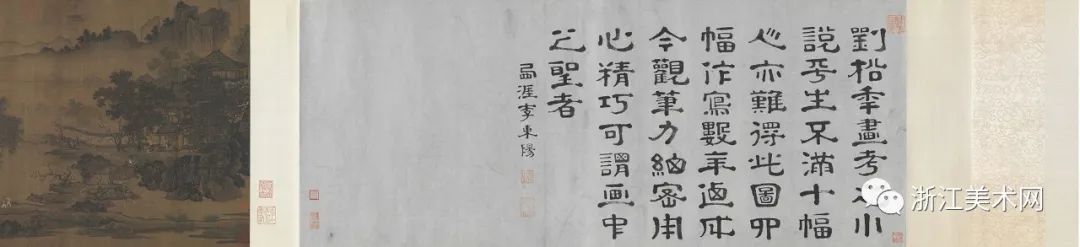 劉松年畫考之小
說平生不滿十幅
心亦難得此圖四
幅作寫數年迺成
今觀筆力細密用
心精巧可謂画中
之聖者
西涯李東陽
浙江美术网